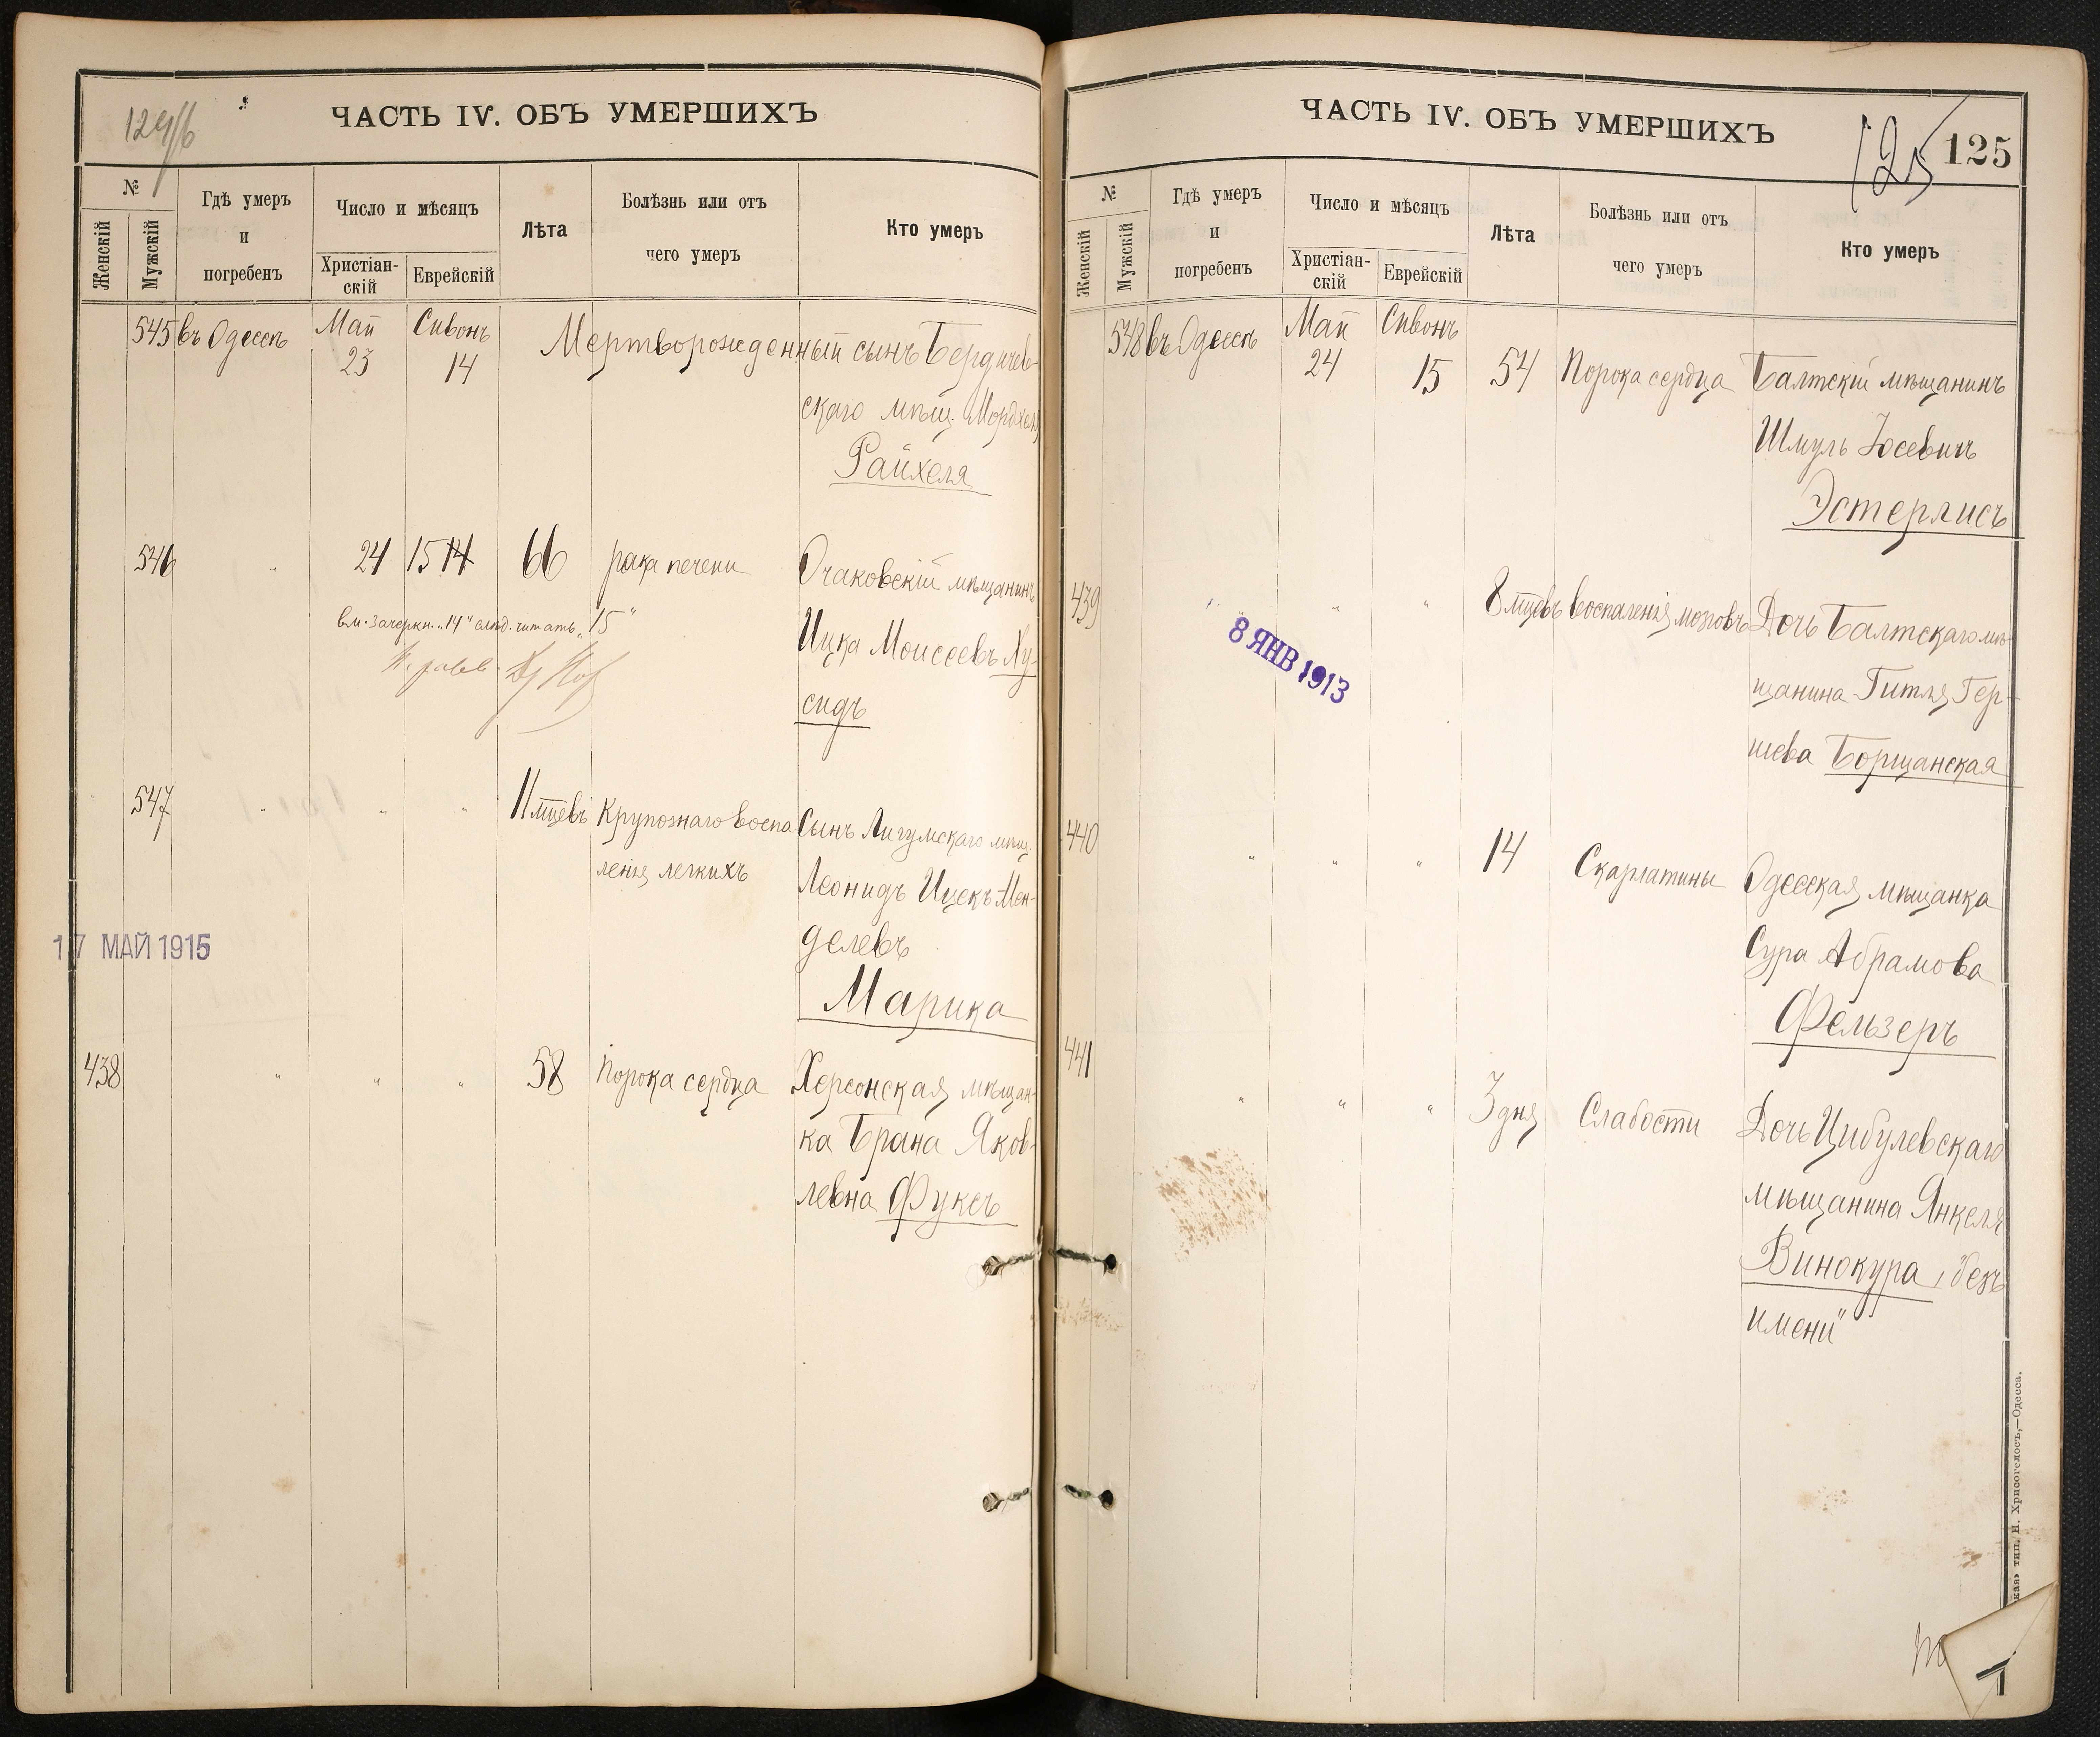 124/б
ЧАСТЬ IV. ОБЪ УМЕРШИХЪ
№
Женскій
Мужскій
Гдѣ умеръ
и
погребенъ
Число и мѣсяцъ
Христіан-
скій
Еврейскій
Лѣта
Болѣзнь или отъ
чего умеръ
Кто умеръ
545 въ Одессѣ Май Сивонъ Мертворожденный сынъ Бердичев-
23 14
скаго мѣщ. Мордхеля
Райхеля
546 " 24 15 14 66 рака печени Очаковскій мѣщанинъ
вм. зачеркн. "14" слѣд. читать "15"
Ицка Моисеевъ Ху-
сидъ
547 " " " 11 мцевъ Крупознаго воспа Сынъ Лигумскаго мѣщ.
ленія легкихъ Леонидъ Ицекъ-Мен-
делевъ
17 МАЙ 1915
Марика
438 " " " 58 Порока сердца Херсонская мѣщан-
ка Брана Яков-
левна Фуксъ
ЧАСТЬ IV. ОБЪ УМЕРШИХЪ
125 125
№
Женскій
Мужскій
Гдѣ умеръ
и
погребенъ
Число и мѣсяцъ
Христіан-
скій
Еврейскій
Лѣта
Болѣзнь или отъ
чего умеръ
Кто умеръ
548 въ Одессѣ Май Сивонъ
24 15 54 Порока сердца Балтскій мѣщанинъ
Шмуль Іосевичъ
Эстерлисъ
439 " " " 8 мцевъ воспаленія мозговъ Дочь Балтскаго мѣ-
8 ЯНВ 1913
щанина Гитля Гер-
шева Борщанская
440 " " " 14 Скарлатины Одесская мѣщанка
Сура Абрамова
Фельзеръ
441 " " " 3 дня Слабости Дочь Цибулевскаго
мѣщанина Янкеля
Винокура, "безъ
имени"
кая» тип. Н. Хрисогелосъ,—Одесса.